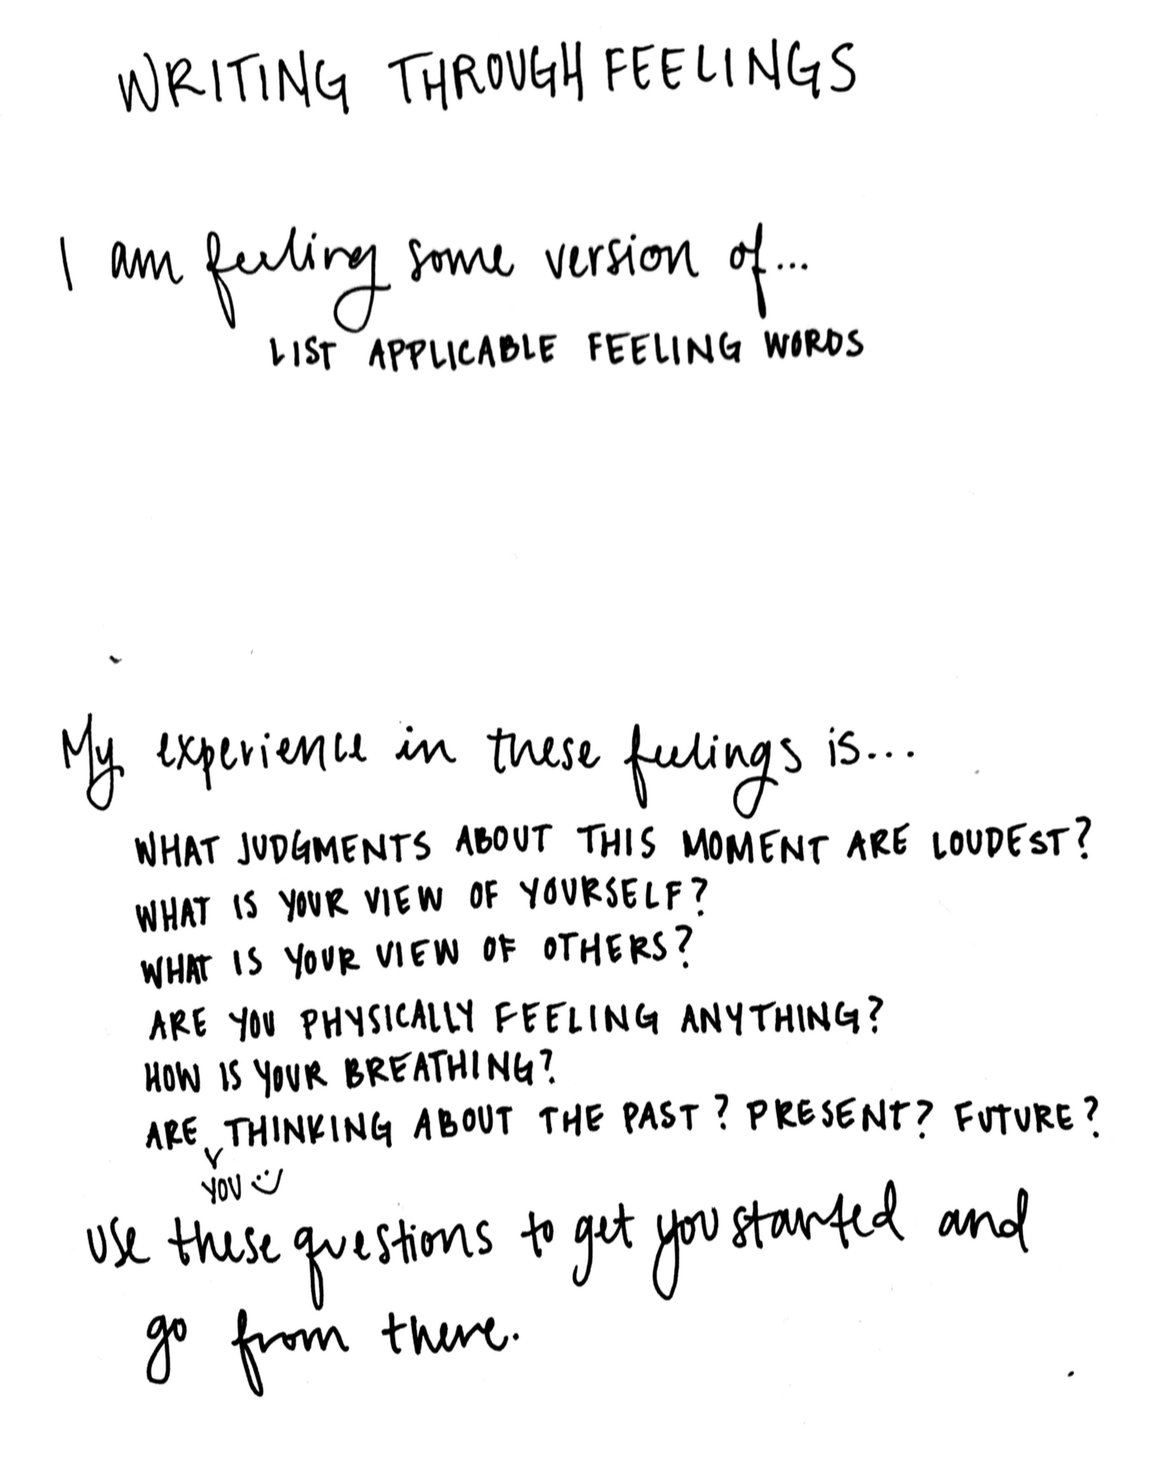 WRITING THROUGH FEELINGS
I am feeling some version of...
LIST APPLICABLE FEELING WORDS
My experience in these feelings is...
WHAT JUDGMENTS ABOUT THIS MOMENT ARE LOUDEST?
WHAT IS YOUR VIEW OF YOURSELF?
WHAT IS YOUR VIEW OF OTHERS?
ARE YOU PHYSICALLY FEELING ANYTHING?
HOW IS YOUR BREATHING?
ARE THINKING ABOUT THE PAST? PRESENT? FUTURE?
YOU
use these questions to get you started and
go from there.